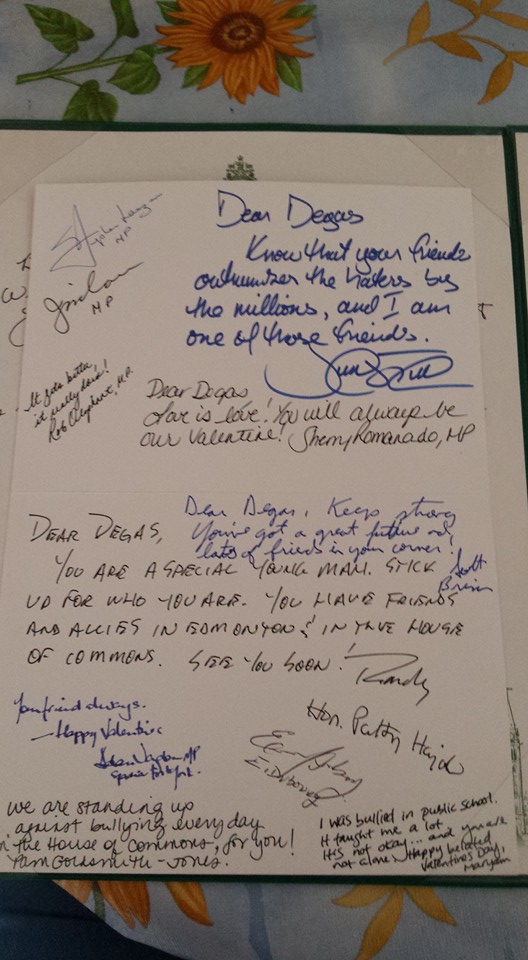 MP
MP
Dear Degas
Know that your friends
outnumber the haters by
the millions, and I am
one of those friends.
It gets better,
it really does!
Rob Oliphant, MP.
Dear Degas
Love is love! You will always be
our Valentine! Sherry Romanado, MP
Dear Degas, Keep strong
You've got a great future and
lots of friends in your corner!
Scott
Brison
DEAR DEGAS,
YOU ARE A SPECIAL YOUNG MAN. STICK
UP FOR WHO YOU ARE. YOU HAVE FRIENDS
AND ALLIES IN EDMONTON & IN THE HOUSE
OF COMMONS. SEE YOU SOON! Randy
Your friend always.
—Happy Valentine
Adam Vaughan MP
Spadina Fort York.
Hon. Patty Hajdu
we are standing up
against bullying everyday
in the House of Commons, for you!
Pam Goldsmith-Jones.
I was bullied in public school.
It taught me a lot.
It's not okay... and you are
not alone. Happy belated
Valentine's Day,
Maryam